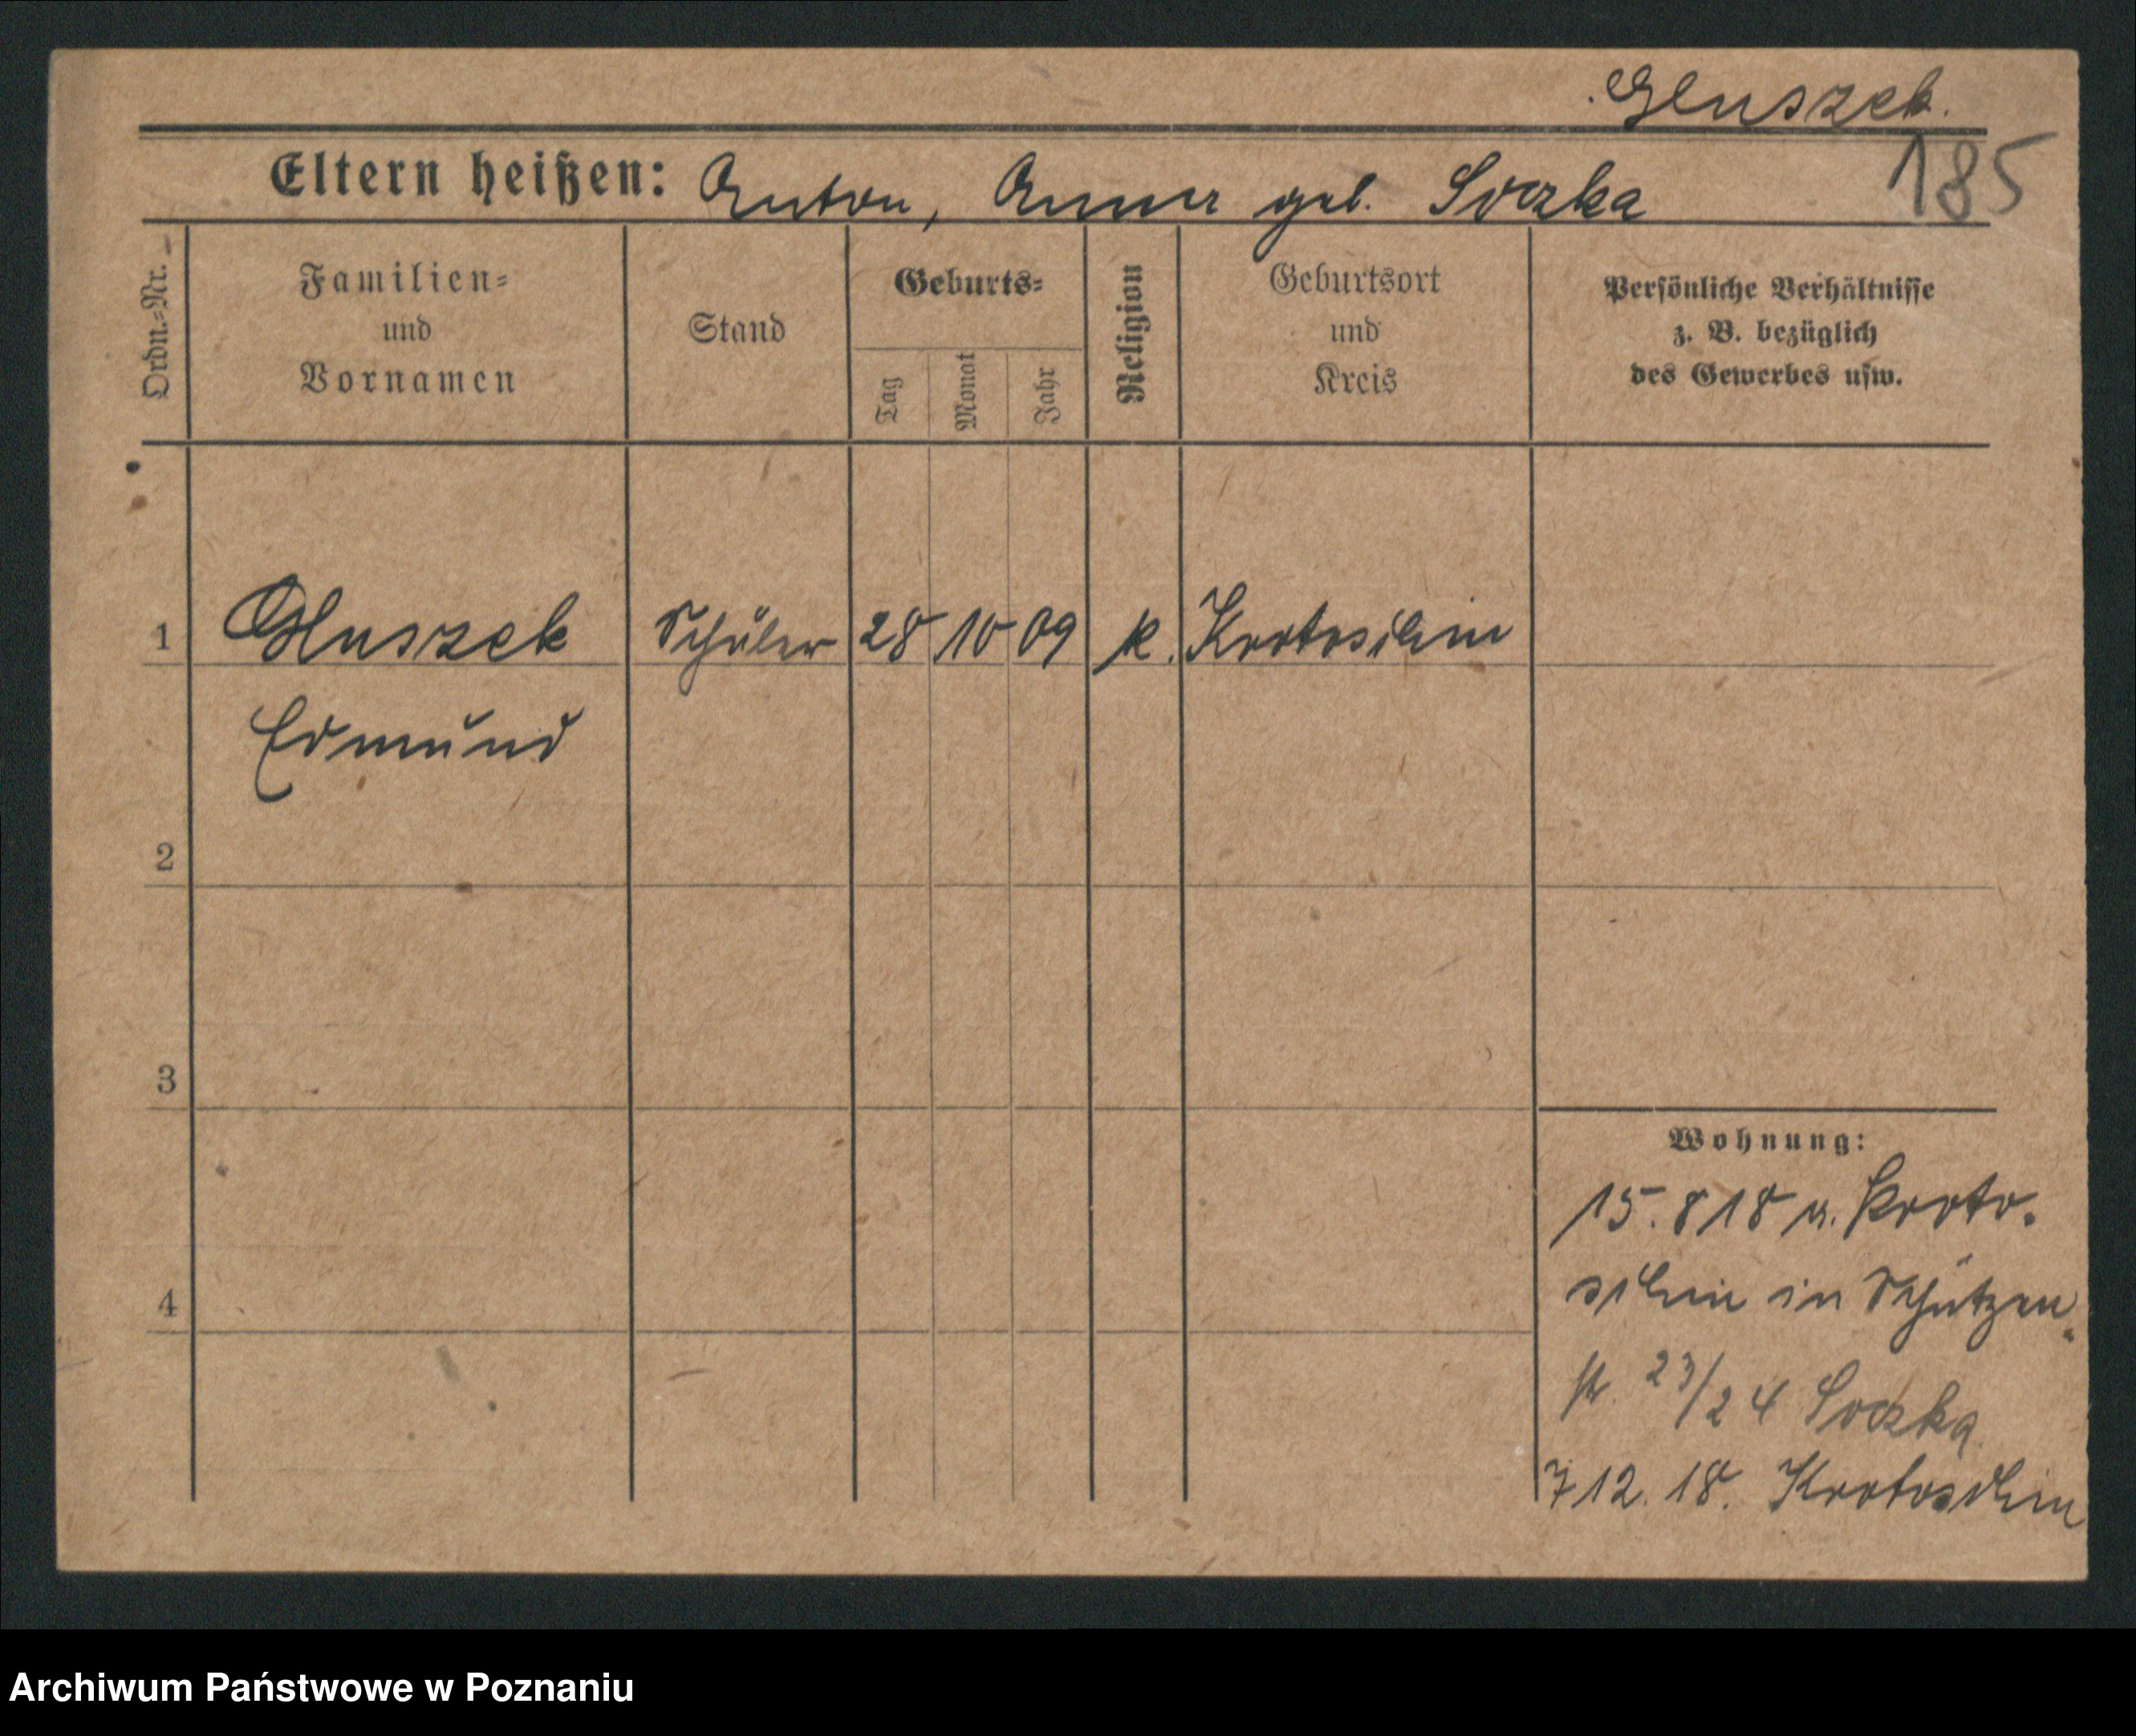 Gluszek.
185
Eltern heißen: Anton, Anna geb. Soczka
Ordn.=Nr.
Familien=
und
Vornamen
Stand
Geburts=
Tag
Monat
Jahr
Religion
Geburtsort
und
Kreis
Persönliche Verhältnisse
z. B. bezüglich
des Gewerbes usw.
1 Gluszek Schüler 28 10 09 k. Krotoschin
Edmund
2
3
4
Wohnung:
15. 8 18 n. Kroto-
schin in Schützen
str. 23/24 Soczka
7 12. 18. Krotoschin
Archiwum Państwowe w Poznaniu